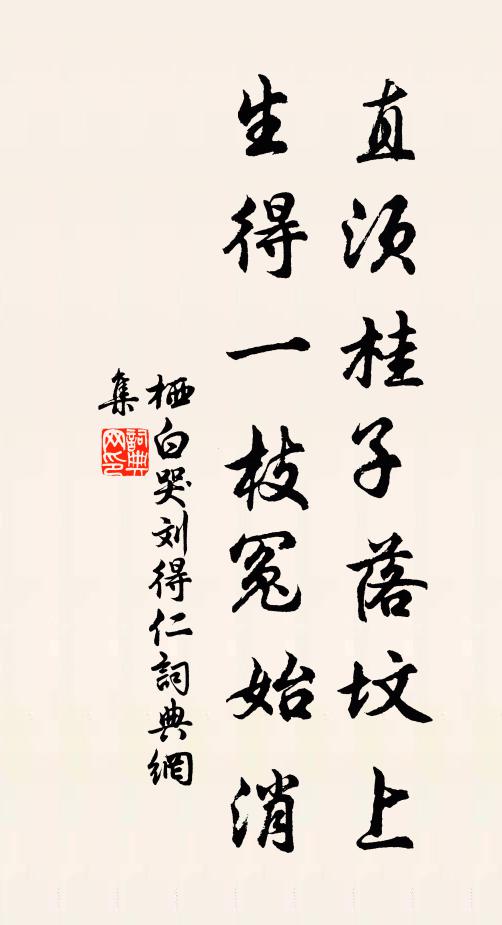 直须桂子落坟上
生得一枝冤始消
栖白哭刘得仁詞典網
集
詞典
网印